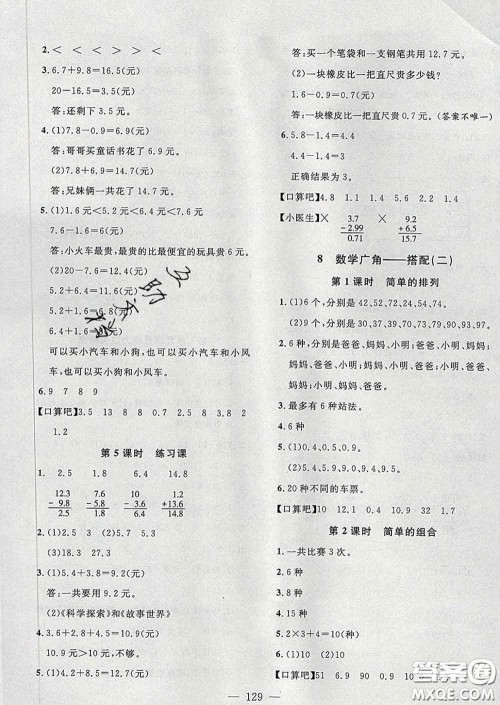 2.＜ ＜ ＜ ＞ ＞ ＜
3.6.7＋9.8＝16.5(元)
20－16.5＝3.5(元)
答:还剩下3.5元。
4.(1)7.8－0.9＝6.9(元)
答:哥哥买童话书花了6.9元。
(2)7.8＋6.9＝14.7(元)
答:兄妹俩一共花了14.7元。
5.(1)1.6元＜5.2元＜6.4元＜7.6元
7.6－1.6＝6(元)
答:小火车最贵,最贵的比最便宜的玩具贵6元。
(2)20－7.6＝12.4(元)
5.2＋6.4＝11.6(元)
5.2＋1.6＝6.8(元)
6.4＋1.6＝
可以买小汽车和小狗,也可以买小汽车和小风
车,也可以买小狗和小风车。
6.9 7 8 9
【口算吧】3.5 13 8 0.7 2.5 3.8 8
1.2
第5课时 练习课
1. 2.5 1.8 6.4 14.8
12.3 7.6 10.0 1.2
－9.8 －5.8 －3.6 ＋13.6
2.5 1.8 6.4 14.8
2.(1)2.5 (2)5.7 5.3
(3)18.3 27
3.(1)5.8＋3.4＝9.2(元)
答:一共用了9.2元。
(2)《科学探索》和《故事世界》
4.3.6＋7.3＝10.9(元)
10.9元＞10元,不够。
5.(1)4.2＋8.5＝12.7(元)
答:买一个笔袋和一支钢笔共用12.7元。
(2)一块橡皮比一把直尺贵多少钱?
1.6－0.9＝0.7(元)
答:一块橡皮比一把直尺贵0.7元。(答案不唯一)
6.5.8－1.4＝4.4
4.4－1.4＝3
正确结果为3。
【口算吧】4.8 1.1 4 5.8 2.9 1.4
【小医生】× 3.7 × 9.2
－2.99 －6.5
0.71 15.7
8 数学广角——搭配(二)
第1课时 简单的排列
1.(1)6个,分别是42,52,72,54,74,75。
(2)9个,分别是30,37,39,70,73,79,90,93,97。
2.6种,分别是妈妈、爸爸、小明;爸爸、小明、
妈妈;小明、妈妈、爸爸;爸爸、妈妈、小明;小
明、爸爸、妈妈;妈妈、小明、爸爸。
3.最多有6种站法。
5.(1)0.4、0.5、0.9。
(2)4.0、4.5、4.9。
6.20种不同的车票。
【口算吧】10 12.1 0.9 10 32 1.7
第2课时 简单的组合
1.一共比赛3次。
2.6种
3.6种
4.15种
5.2×3＋4＝10(种)
6.(1)10 (2)10
【口算吧】51 6.9 0.9 10 90
129
答案圈
MXQE.COM